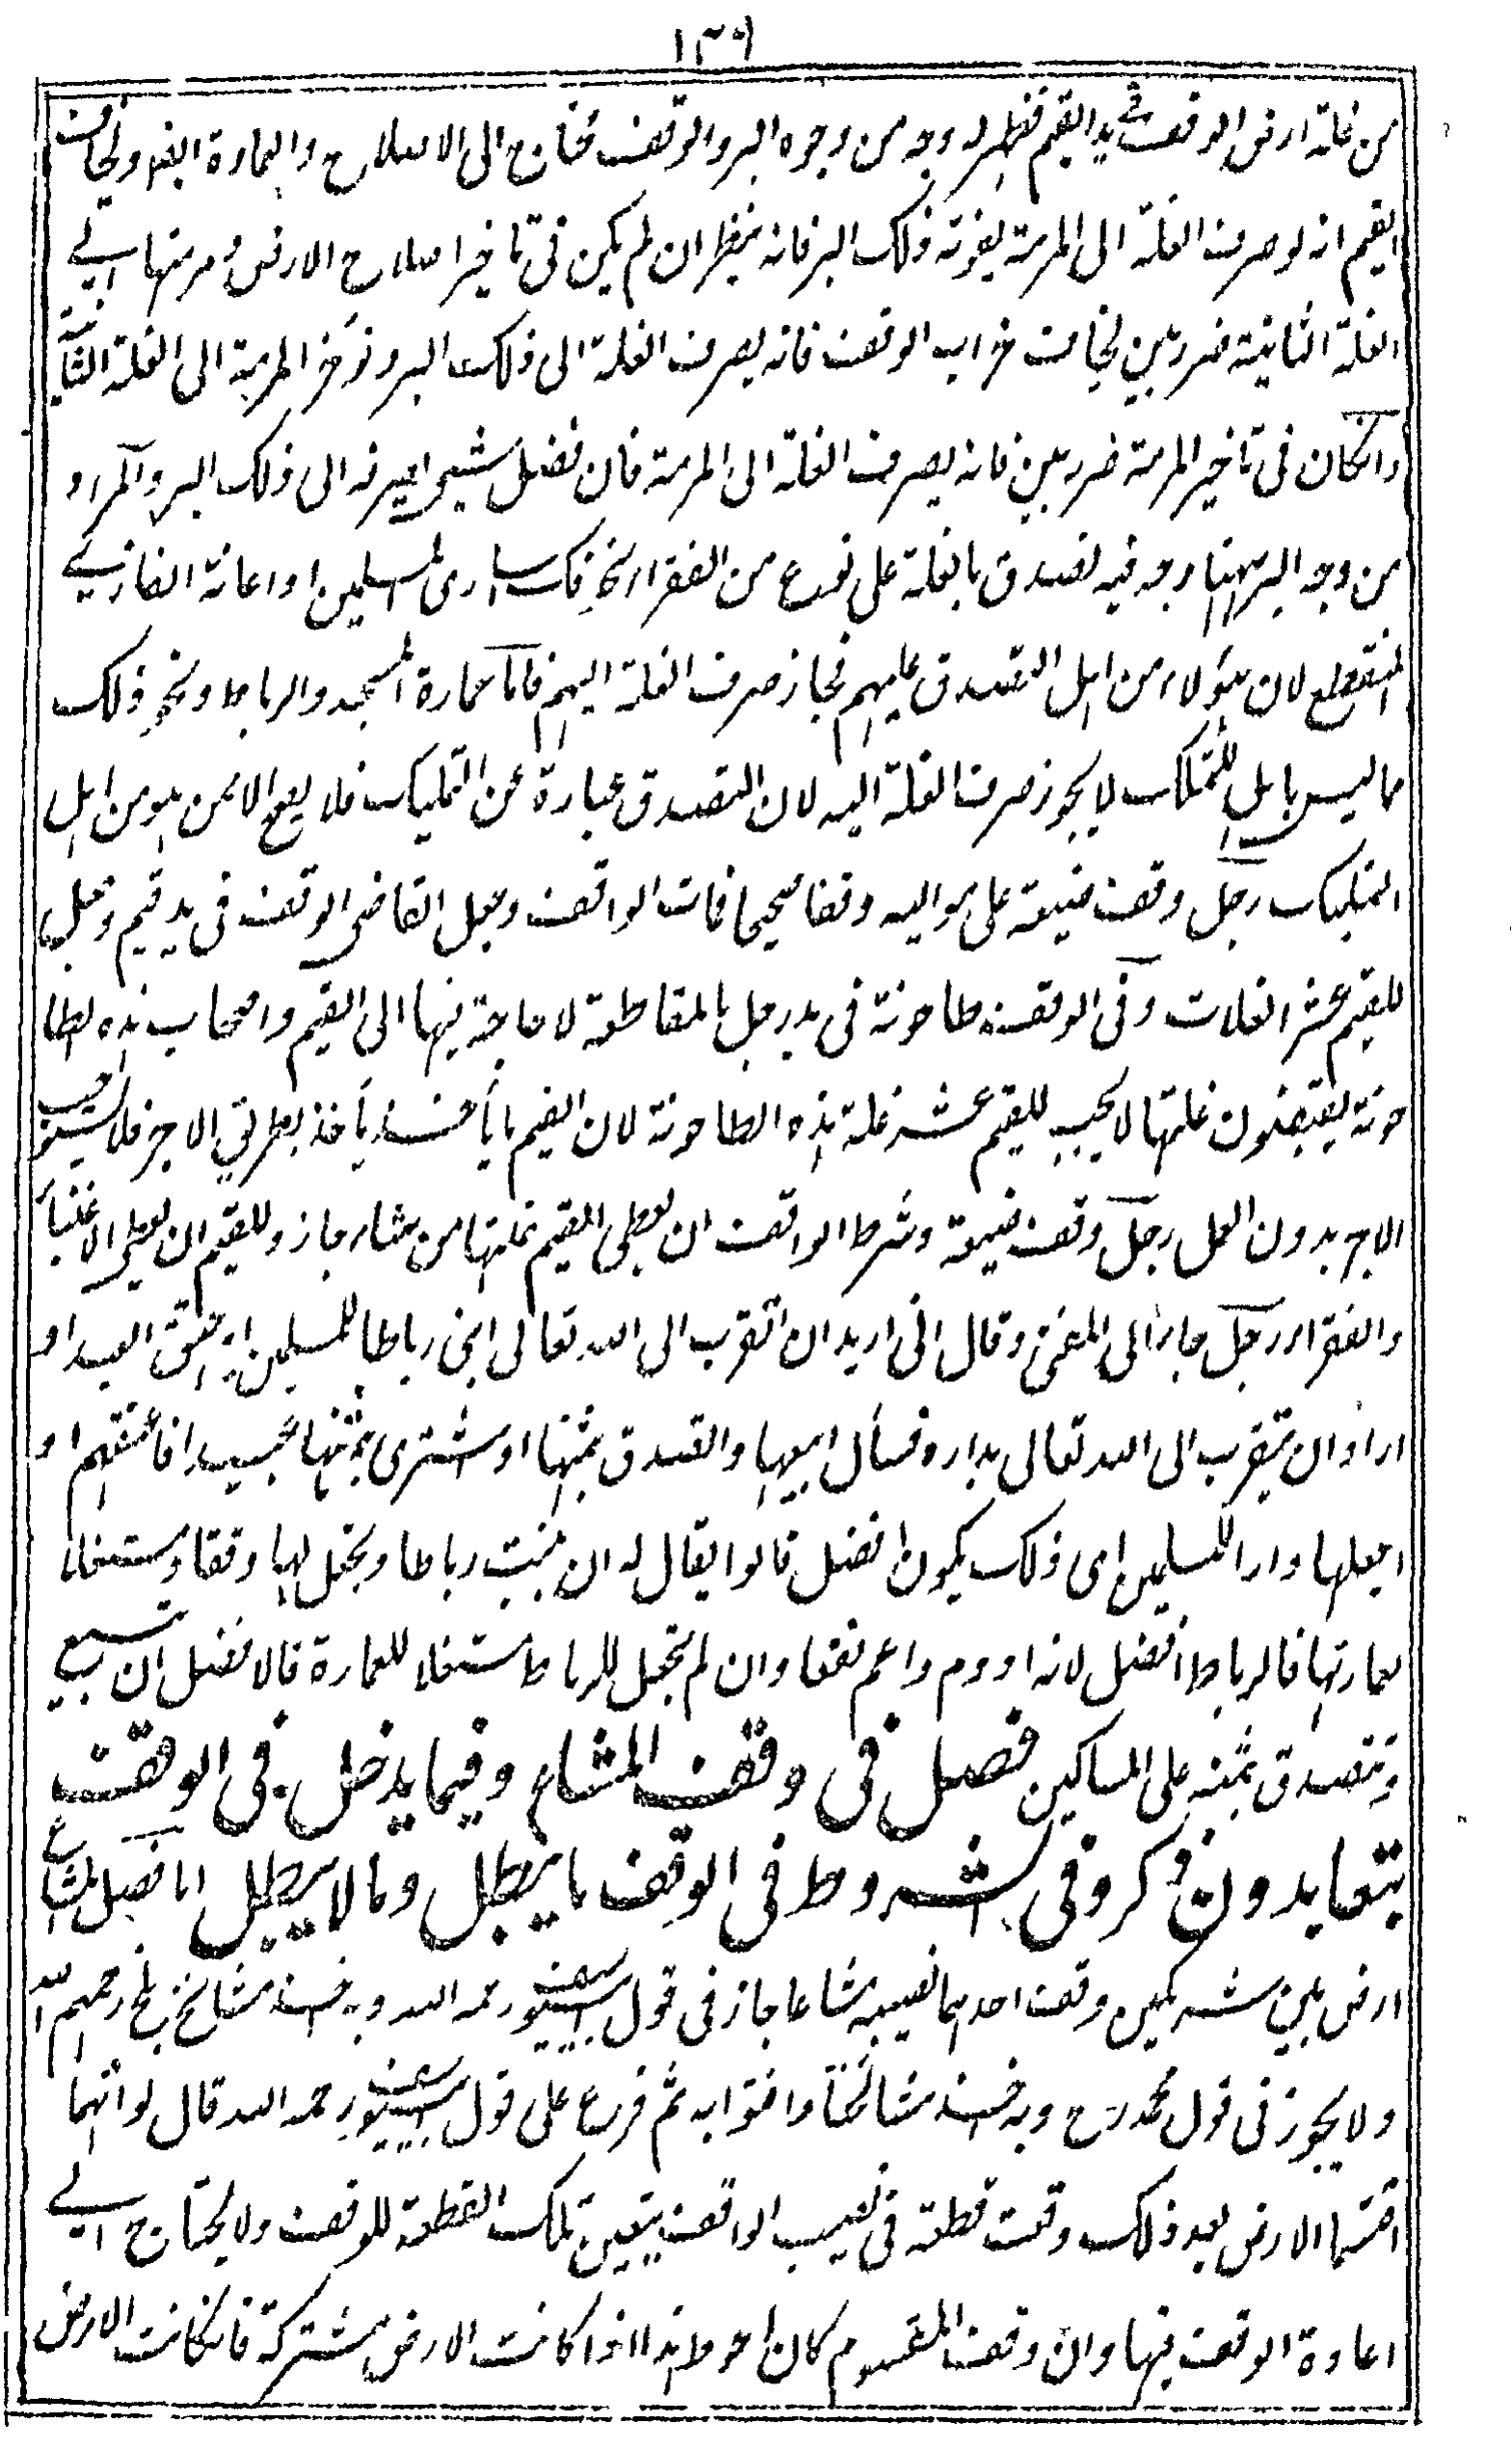 ١٣٩
من غلة ارض الوقف في يد القيم فظهر له وجه من وجوه البر والوقف محتاج الى الاصلاح والعمارة ايضا ويخاف
القيم انه لو صرف الغلة الى المرمة يفوته ذلك البر فانه ينظر ان لم يكن في تاخير اصلاح الارض ومرمتها الى
الغلة الثانية ضرر بين يخاف خراب الوقف فانه يصرف الغلة الى ذلك البر وتؤخر المرمة الى الغلة الثانية
وانكان في تاخير المرمة ضرر بين فانه يصرف الغلة الى المرمة فان فضل شيء يصرفه الى ذلك البر والمراد
من وجه البر ههنا وجه فيه تصدق بالغلة على نوع من الفقراء نحو فك اسارى المسلمين او اعانة الغازي
المنقطع لان هؤلاء من اهل التصدق عليهم فجاز صرف الغلة اليهم فاما عمارة المسجد والرباط ونحو ذلك
مما ليس باهل للتملك لا يجوز صرف الغلة اليه لان التصدق عبارة عن التمليك فلا يصح الا ممن هو من اهل
التمليك رجل وقف ضيعة على مواليه وقفا صحيحا فمات الواقف وجعل القاضي الوقف في يد قيم وجعل
للقيم عشر الغلات وفي الوقف طاحونة في يد رجل بالمقاطعة لا حاجة فيها الى القيم واصحاب هذه الطا
حونة يقبضون غلتها لا يجب للقيم عشر غلة هذه الطاحونة لان القيم ما يأخذ يأخذ بطريق الاجر فلا يستوجب
الاجر بدون العمل رجل وقف ضيعة وشرط الواقف ان يعطي القيم غلتها من شاء جاز وللقيم ان يعطي الاغنياء
والفقراء رجل جاء الى المفتي وقال اني اريد ان اتقرب الى الله تعالى ابني رباطا للمسلمين او اعتق العبيد او
اراد ان يتقرب الى الله تعالى بداره فسأل ابيعها واتصدق بثمنها او اشتري بثمنها عبيدا فاعتقهم او
اجعلها دارا للمسلمين اي ذلك يكون افضل قالوا يقال له ان بنيت رباطا وتجعل لها وقفا ومستغلا
لعمارتها فالرباط افضل لانه ادوم واعم نفعا وان لم تجعل للرباط مستغلا للعمارة فالافضل ان تبيع
وتتصدق بثمنه على المساكين فصل في وقف المشاع وفيما يدخل في الوقف
تبعا بدون ذكر وفي الشروط في الوقف ما يبطل وما لا يبطل اما فصل المشاع
ارض بين شريكين وقف احدهما نصيبه مشاعا جاز في قول ابي يوسف رحمه الله وبه اخذ مشائخ بلخ رحمهم الله
ولا يجوز في قول محمد رح وبه اخذ مشائخنا وافتوا به ثم فرع على قول ابي يوسف رحمه الله قال لو انهما
اقتسما الارض بعد ذلك وقعت قطعة في نصيب الواقف يتعين تلك القطعة للوقف ولا يحتاج الى
اعادة الوقف فيها وان وقف المقسوم كان احوط هذا اذا كانت الارض مشتركة فان كانت الارض